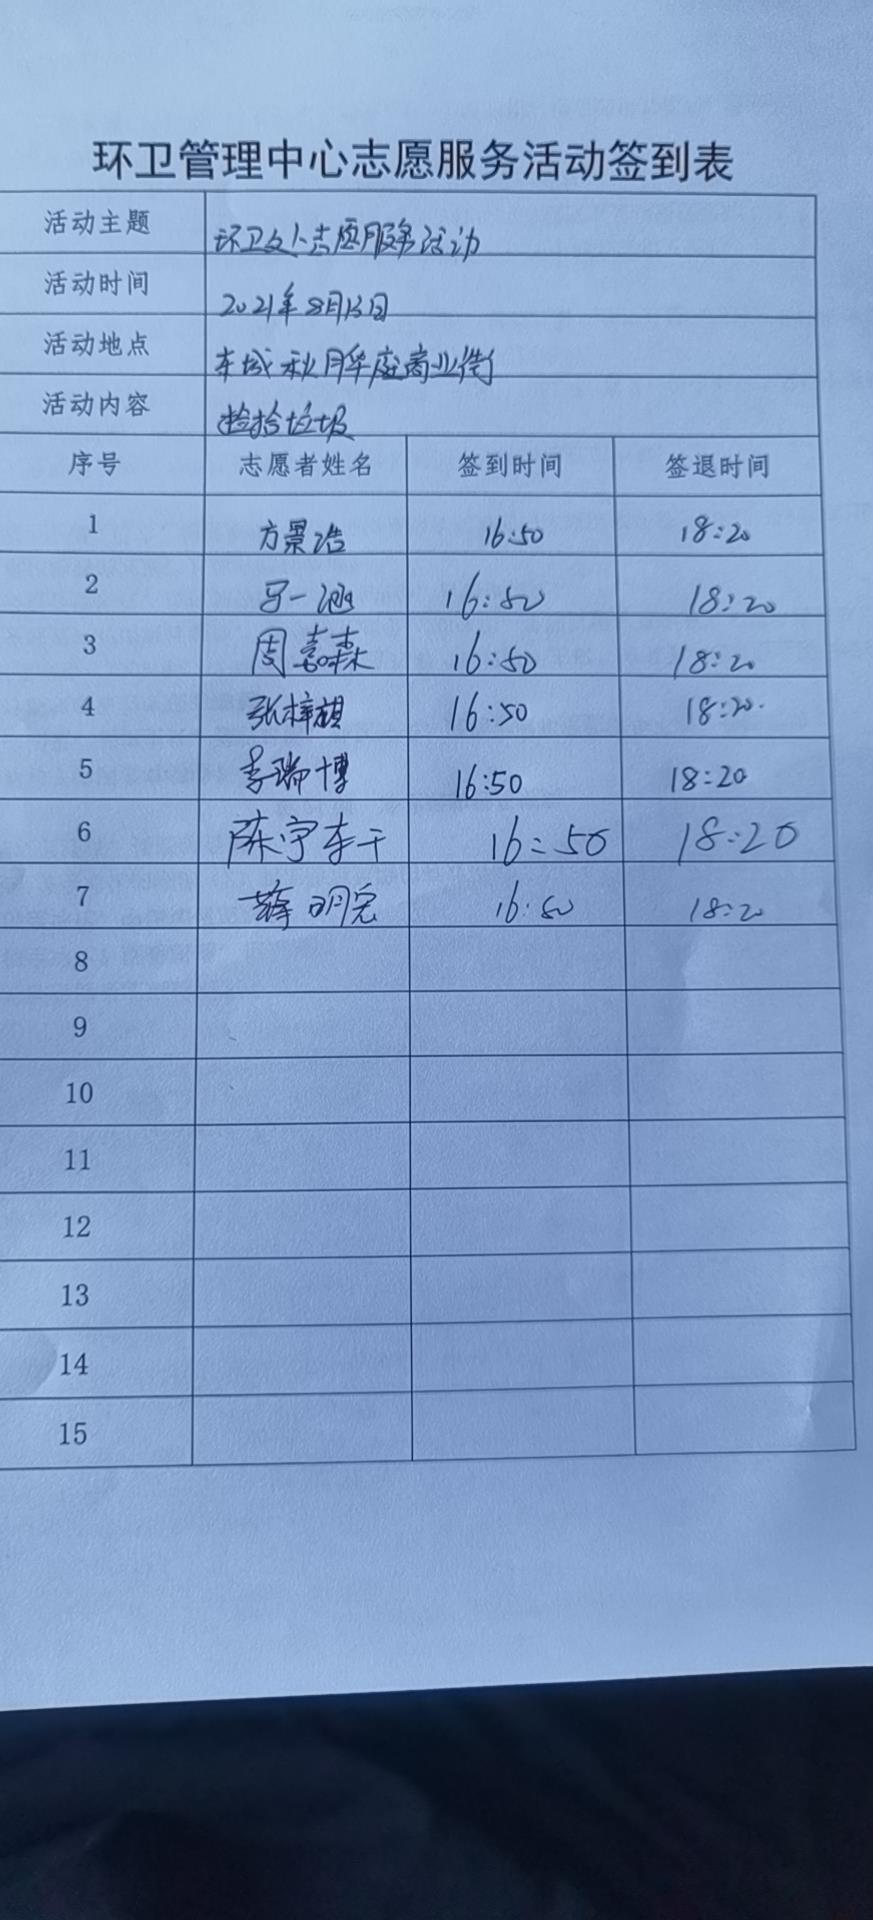 环卫管理中心志愿服务活动签到表
活动主题 环卫处志愿服务活动
活动时间 2021年8月13日
活动地点 东城秋月华庭商业街
活动内容 捡拾垃圾
序号 志愿者姓名 签到时间 签退时间
1 方景浩 16:50 18:20
2 马一涵 16:50 18:20
3 周嘉森 16:50 18:20
4 张梓祺 16:50 18:20
5 李瑞博 16:50 18:20
6 陈宇 16:50 18:20
7 明宪 16:50 18:20
8
9
10
11
12
13
14
15